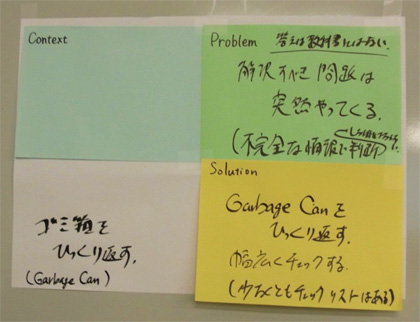 Context
Problem 答えは教科書にはない.
解決すべき問題は
突然やってくる.
(不完全な情報で判断
Solution
Garbage Canを
ひっくり返す.
幅広くチェックする.
(少なくともチェックリストはある)
ゴミ箱を
ひっくり返す.
(Garbage Can)